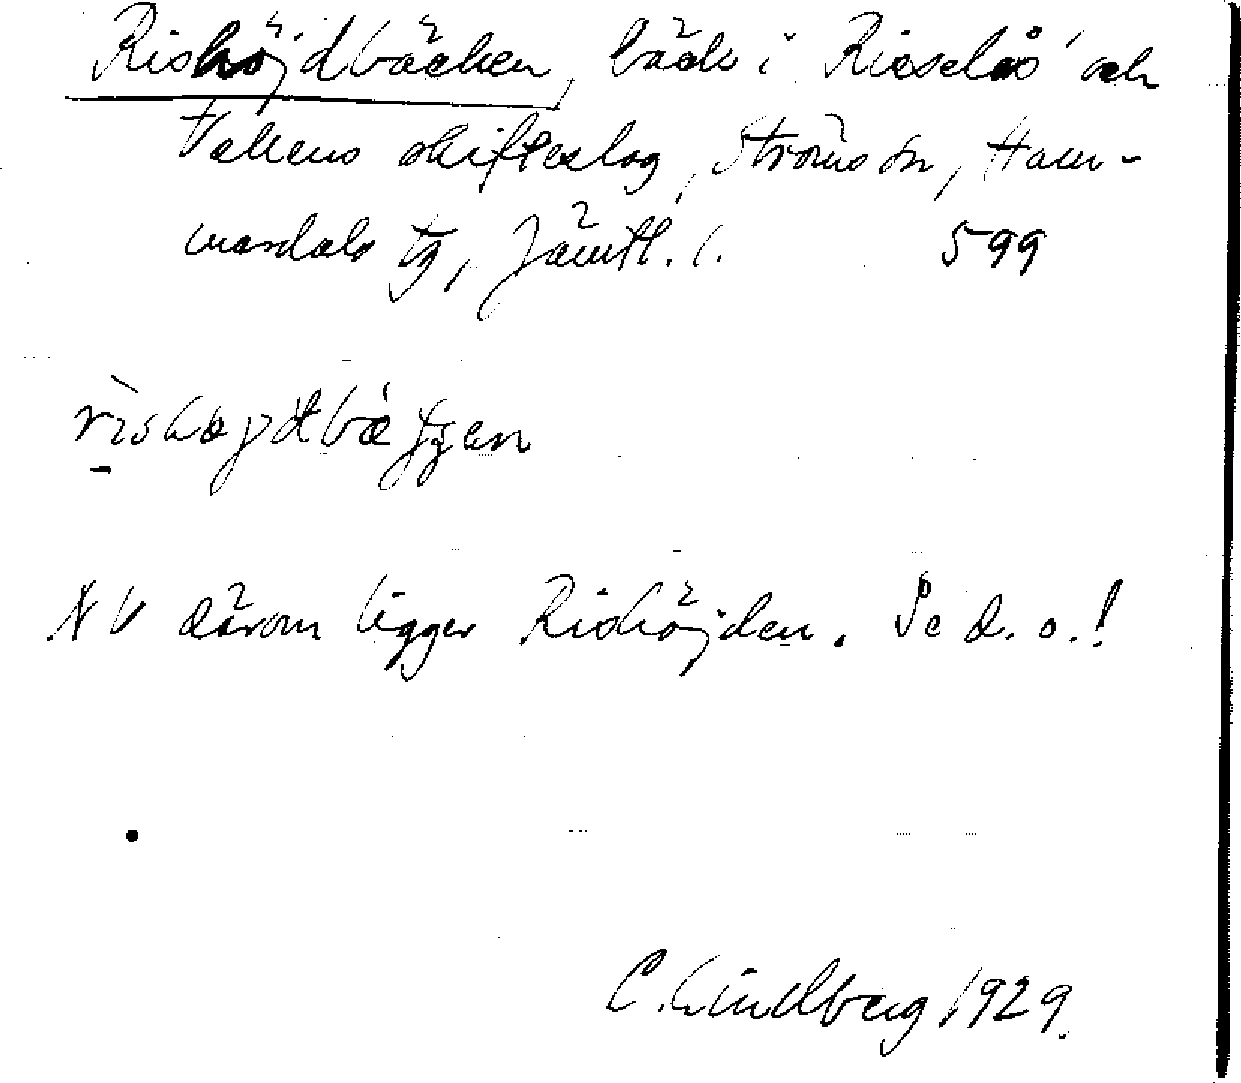 Rishöjdbäcken, bäck i Risselås och
Vallens skifteslag, Ströms sn, Ham-
merdals tg, Jämtl. l. 599
NV därom ligger Rishöjden. Se d. o.!
C. Lindberg 1929.